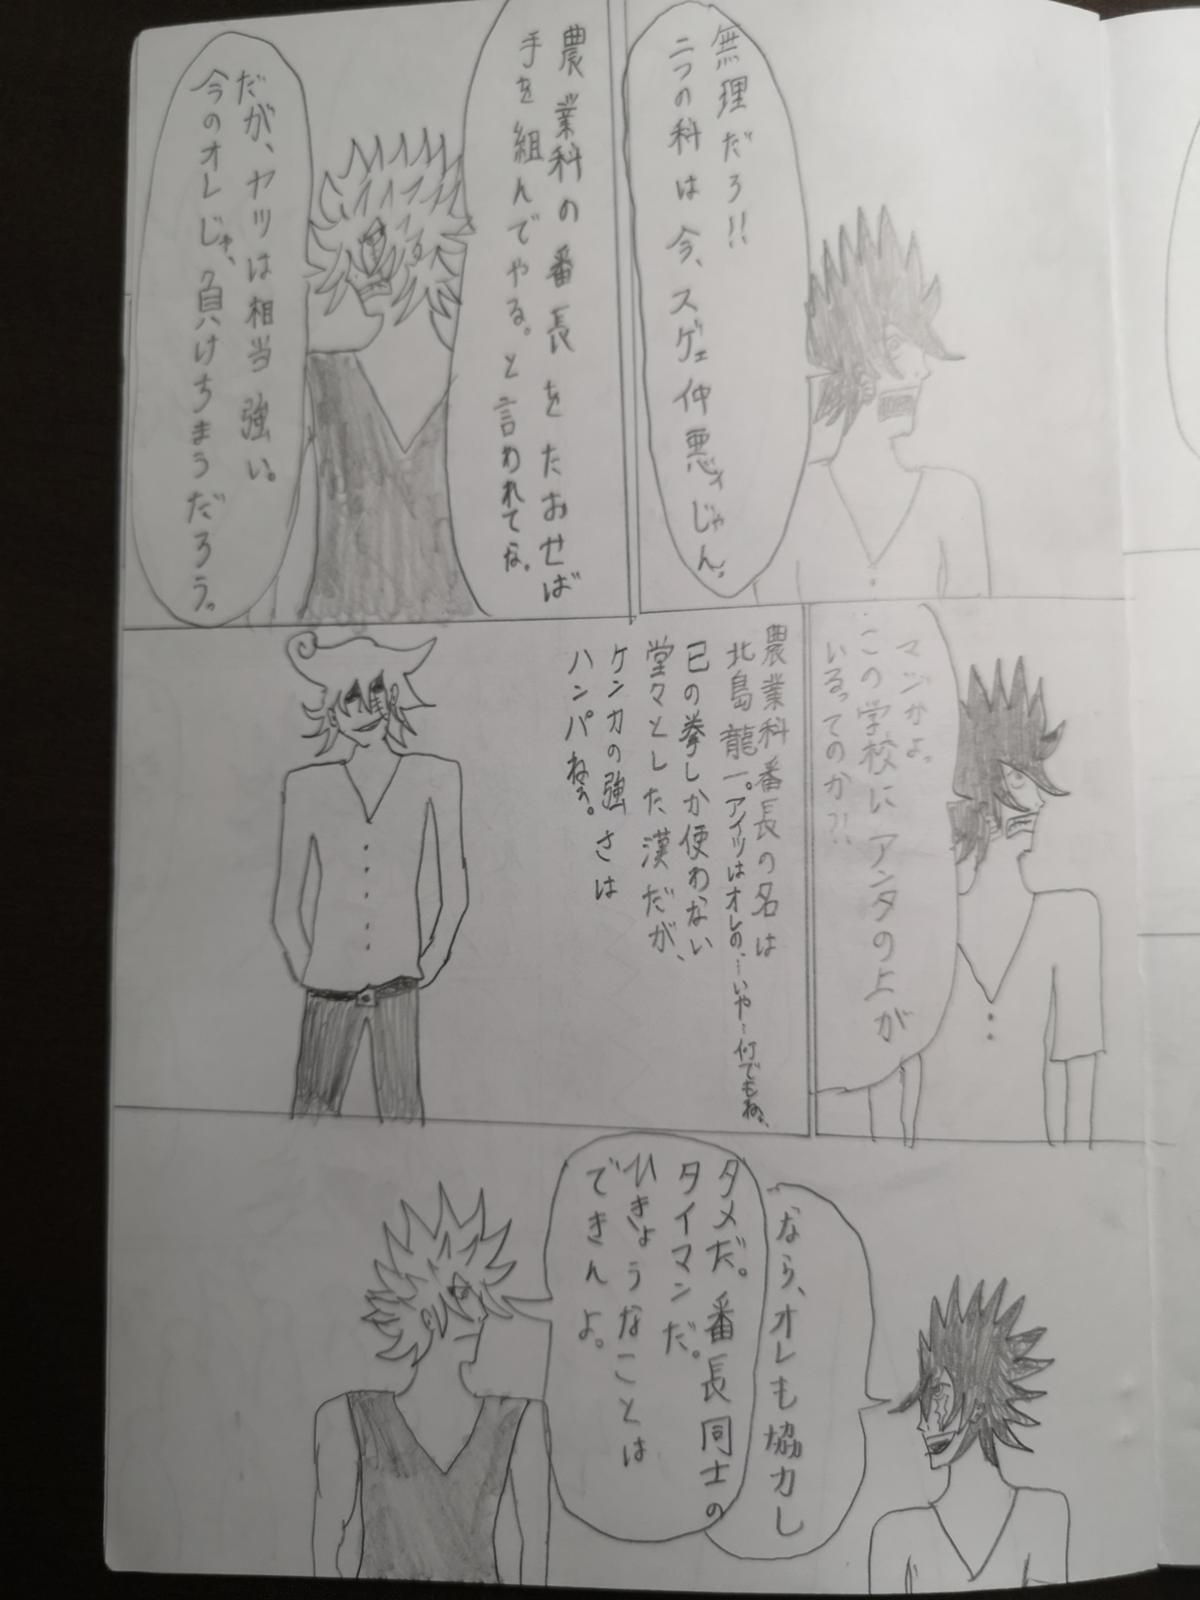 無理だろ!!
二つの科は今、スゲェ仲悪ィじゃん。
農業科の番長をたおせば
手を組んでやる。と言われてな。
だが、ヤツは相当強い。
今のオレじゃ、負けちまうだろう。
マジかよ。
この学校にアンタの上が
いるってのか?!
農業科番長の名は
北島龍一。アイツはオレの…いや…何でもねぇ、
己の拳しか使わない
堂々とした漢だが、
ケンカの強さは
ハンパねぇ。
なら、オレも協力し
ダメだ。番長同士の
タイマンだ。
ひきょうなことは
できんよ。